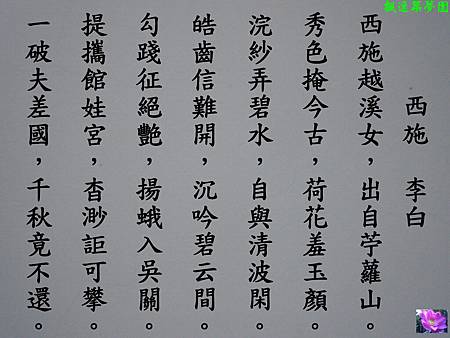 西施　李白
西施越溪女，出自苧蘿山。
秀色掩今古，荷花羞玉顏。
浣紗弄碧水，自與清波閑。
皓齒信難開，沉吟碧云間。
勾踐征絕艷，揚蛾入吳關。
提攜館娃宮，杳渺詎可攀。
一破夫差國，千秋竟不還。